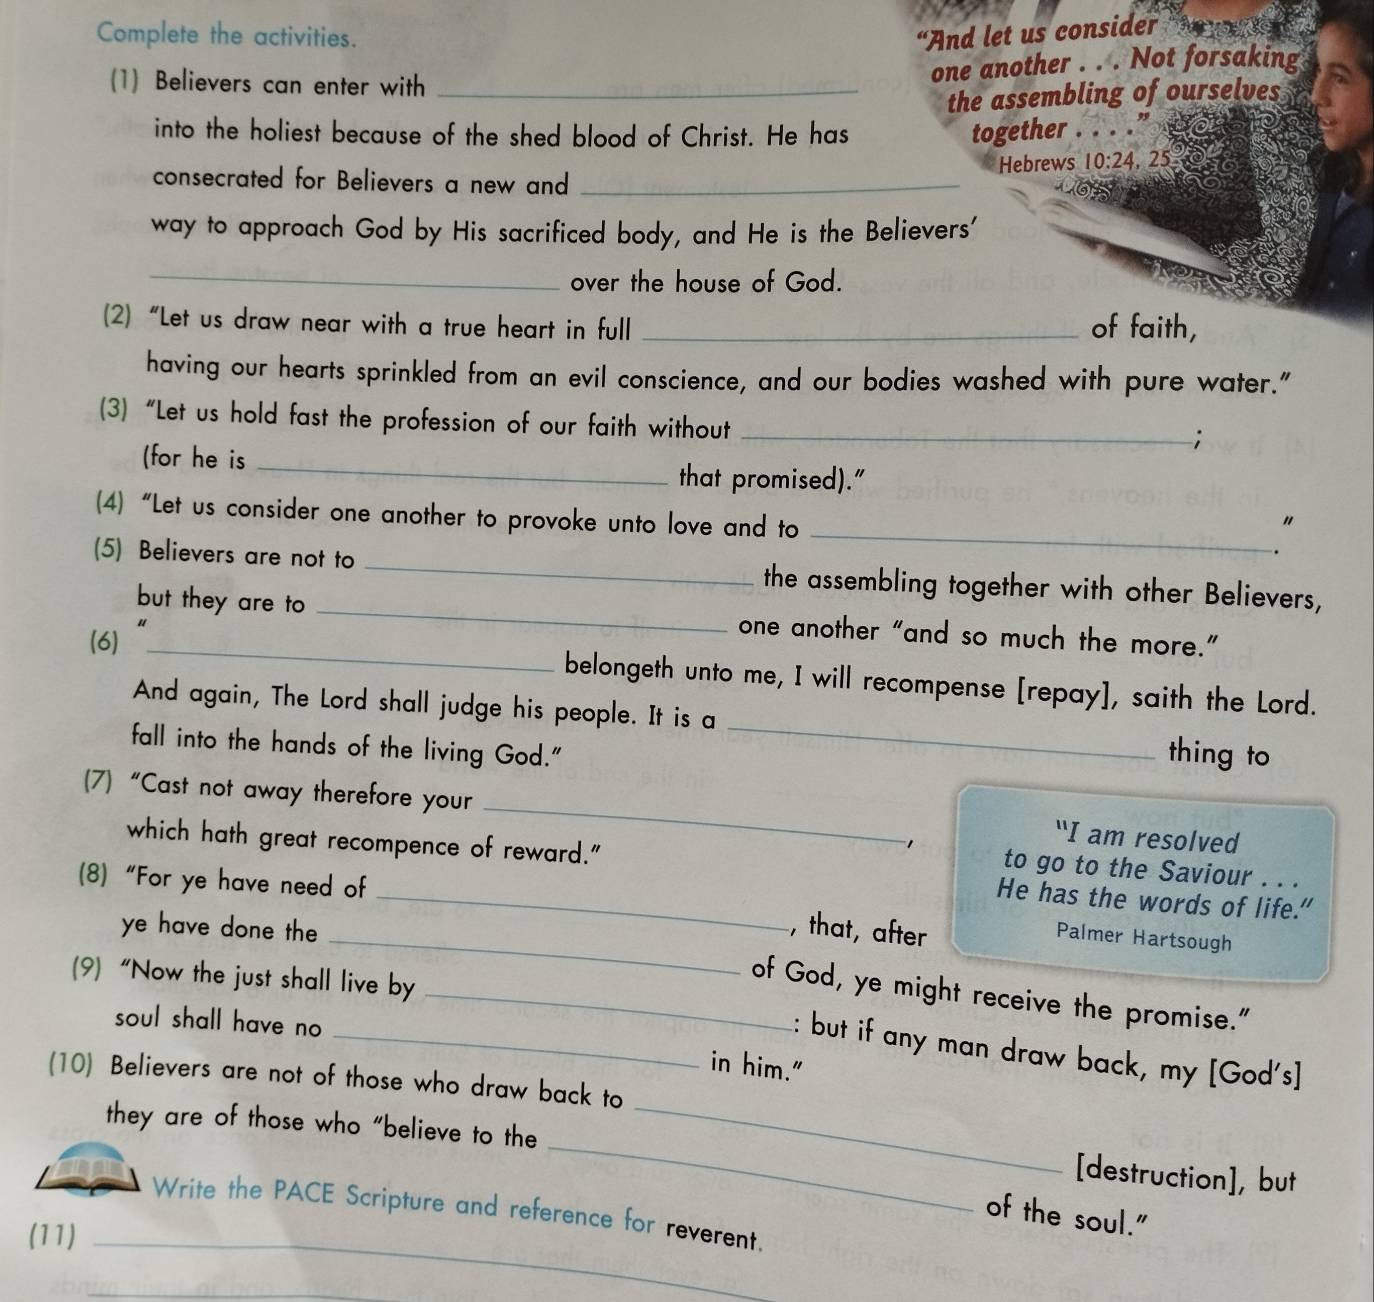 Complete the activities.
"And let us consider
one another . . . Not forsaking
the assembling of ourselves
together . . . ."
Hebrews 10:24, 25
(1) Believers can enter with
into the holiest because of the shed blood of Christ. He has
consecrated for Believers a new and
way to approach God by His sacrificed body, and He is the Believers'
over the house of God.
(2) "Let us draw near with a true heart in full of faith,
having our hearts sprinkled from an evil conscience, and our bodies washed with pure water."
(3) "Let us hold fast the profession of our faith without ;
(for he is that promised)."
(4) "Let us consider one another to provoke unto love and to ."
(5) Believers are not to the assembling together with other Believers,
but they are to one another "and so much the more."
(6) " belongeth unto me, I will recompense [repay], saith the Lord.
And again, The Lord shall judge his people. It is a thing to
fall into the hands of the living God."
(7) "Cast not away therefore your ,
which hath great recompence of reward."
(8) "For ye have need of , that, after
ye have done the of God, ye might receive the promise."
(9) "Now the just shall live by : but if any man draw back, my [God's]
soul shall have no in him."
(10) Believers are not of those who draw back to [destruction], but
they are of those who "believe to the of the soul."
"I am resolved
to go to the Saviour . . .
He has the words of life."
Palmer Hartsough
Write the PACE Scripture and reference for reverent.
(11)